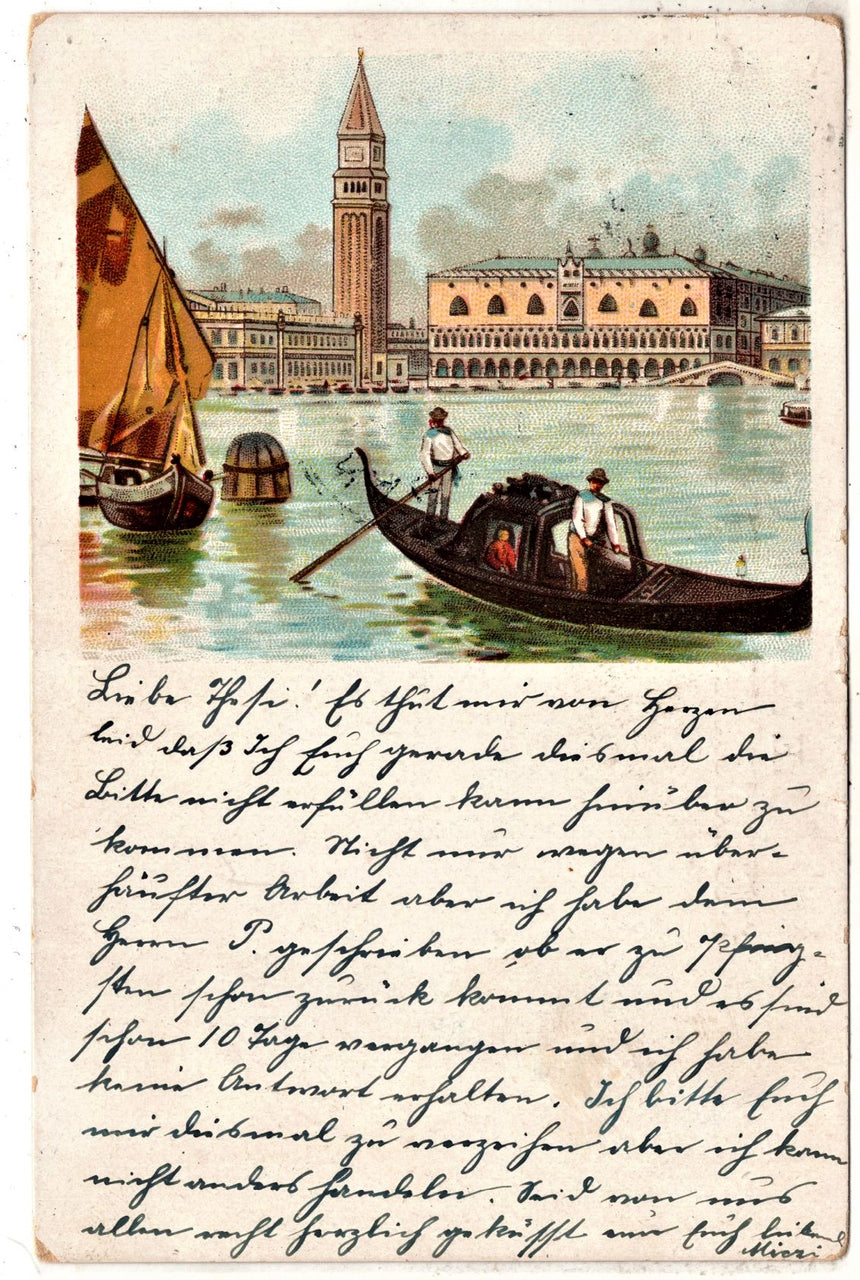 Liebe Thesi! Es thut mir von Herzen
leid daß Ich Euch gerade diesmal die
Bitte nicht erfüllen kann hinüber zu
kommen. Nicht nur wegen über-
häufter Arbeit aber ich habe dem
Herrn P. geschrieben ob er zu Pfing-
sten schon zurück kommt und es sind
schon 10 Tage vergangen und ich habe
keine Antwort erhalten. Ich bitte Euch
mir diesmal zu verzeihen aber ich kann
nicht anders handeln. Seid von uns
allen recht herzlich geküsst Euch
Mizzi